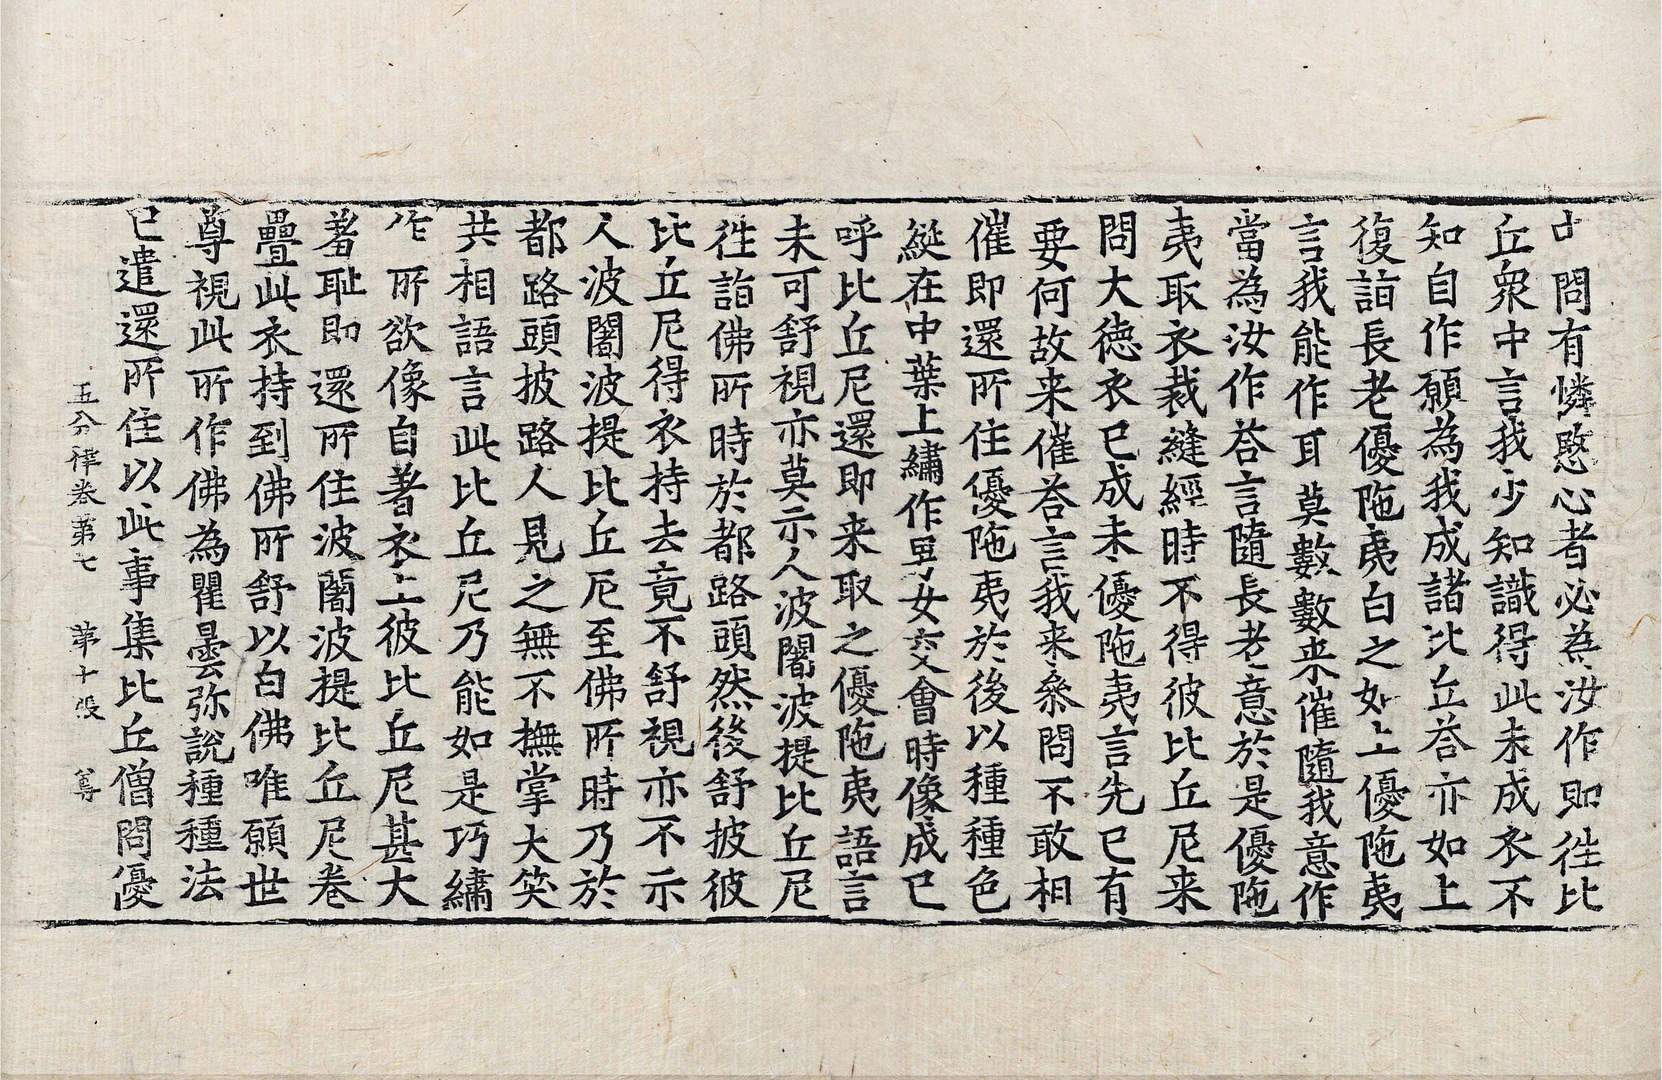 中問有憐愍心者必為汝作即徃比
丘衆中言我少知識得此未成衣不
知自作願為我成諸比丘荅亦如上
復詣長老優陁夷白之如上優陁夷
言我能作耳莫數數来催隨我意作
當為汝作荅言隨長老意於是優陁
夷取衣裁縫經時不得彼比丘尼来
問大德衣已成未優陁夷言先已有
要何故来催荅言我来叅問不敢相
催即還所住優陁夷於後以種種色
綖在中葉上繡作男女交會時像成已
呼比丘尼還即来取之優陁夷語言
未可舒視亦莫示人波闍波提比丘尼
徃詣佛所時於都路頭然後舒披彼
比丘尼得衣持去竟不舒視亦不示
人波闍波提比丘尼至佛所時乃於
都路頭披路人見之無不撫掌大笑
共相語言此比丘尼乃能如是巧繡
作所欲像自著衣上彼比丘尼甚大
羞耻即還所住波闍波提比丘尼卷
疊此衣持到佛所舒以白佛唯願世
尊視此所作佛為瞿曇弥說種種法
已遣還所住以此事集比丘僧問優
五分律卷第七 第十張